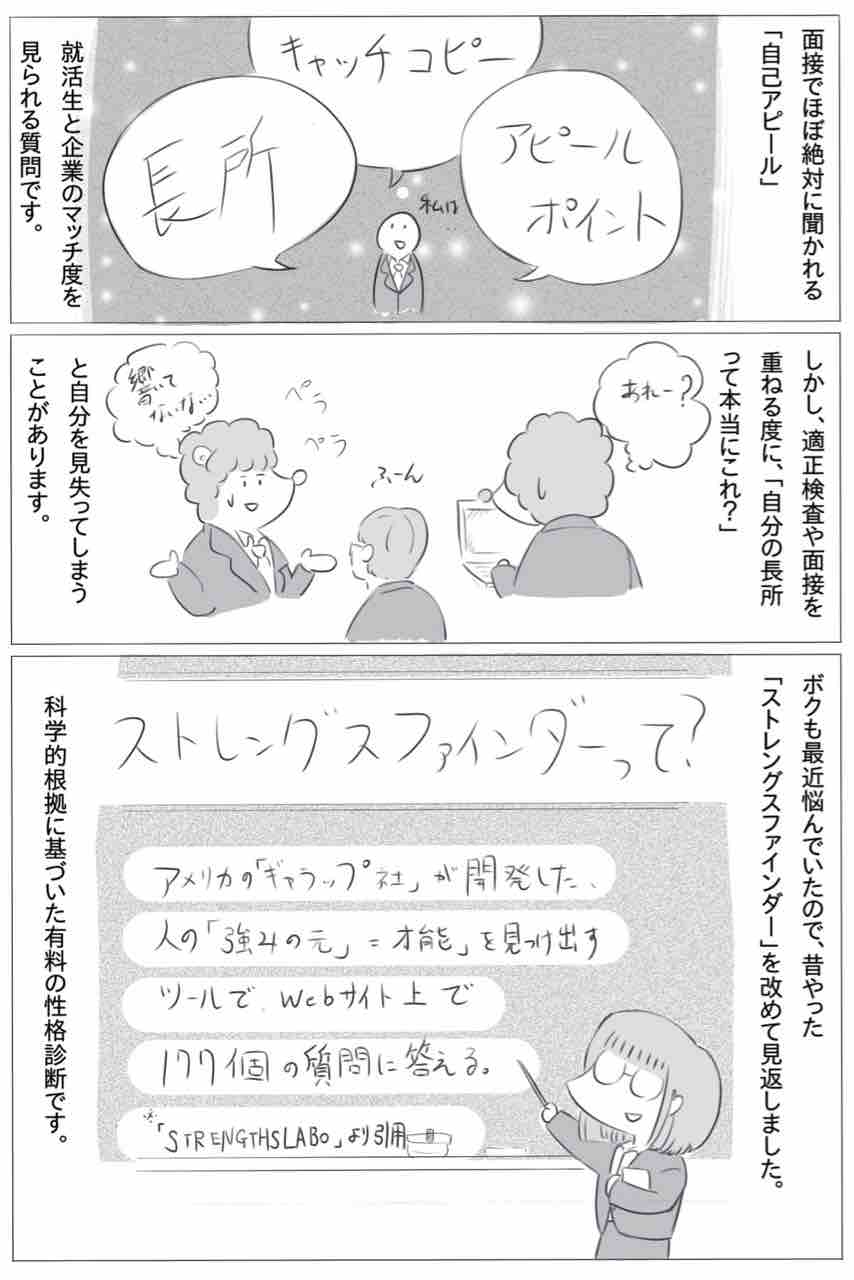 面接でほぼ絶対に聞かれる
「自己アピール」
キャッチコピー
アピール
ポイント
長所
私は
就活生と企業のマッチ度を
見られる質問です。
しかし、適正検査や面接を
重ねる度に、「自分の長所
って本当にこれ？」
あれー？
ふーん
ペラ
ペラ
響いて
ないな…
と自分を見失ってしまう
ことがあります。
ボクも最近悩んでいたので、昔やった
「ストレングスファインダー」を改めて見返しました。
ストレングスファインダーって?
アメリカの「ギャラップ社」が開発した、
人の「強みの元」=才能」を見つけ出す
ツールで、Webサイト上で
177個の質問に答える。
※「STRENGTHSLABO」より引用
科学的根拠に基づいた有料の性格診断です。